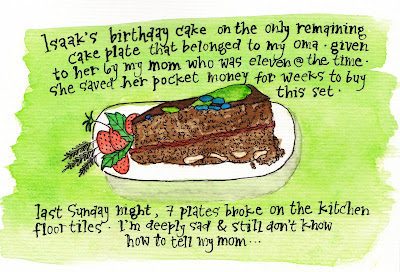 Isaak's birthday cake on the only remaining
cake plate that belonged to my oma. given
to her by my mom who was eleven @ the time.
she saved her pocket money for weeks to buy
this set.
last Sunday night, 7 plates broke on the kitchen
floor tiles. I'm deeply sad & still don't know
how to tell my mom...